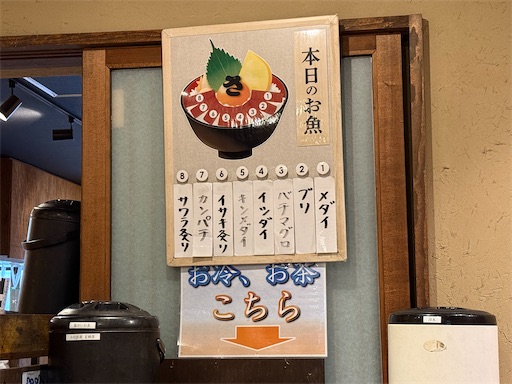 本日のお魚
さ
① メダイ
② ブリ
③ バチマグロ
④ イシダイ
⑤ キンメダイ
⑥ イサキ炙り
⑦ カンパチ
⑧ サワラ炙り
お冷、お茶
こちら